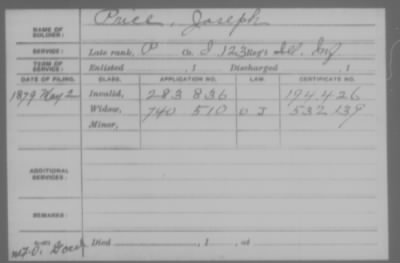 NAME OF SOLDIER: Price, Joseph
SERVICE: Late rank, P Co. I, 123 Reg't Ill. Inf
TERM OF SERVICE: Enlisted , 1 Discharged , 1
DATE OF FILING. CLASS. APPLICATION NO. LAW. CERTIFICATE NO.
1879 May 2 Invalid, 283 836 194 426
Widow, 740 510 O J 532 139
Minor,
ADDITIONAL SERVICES:
REMARKS:
Died , 1 , at